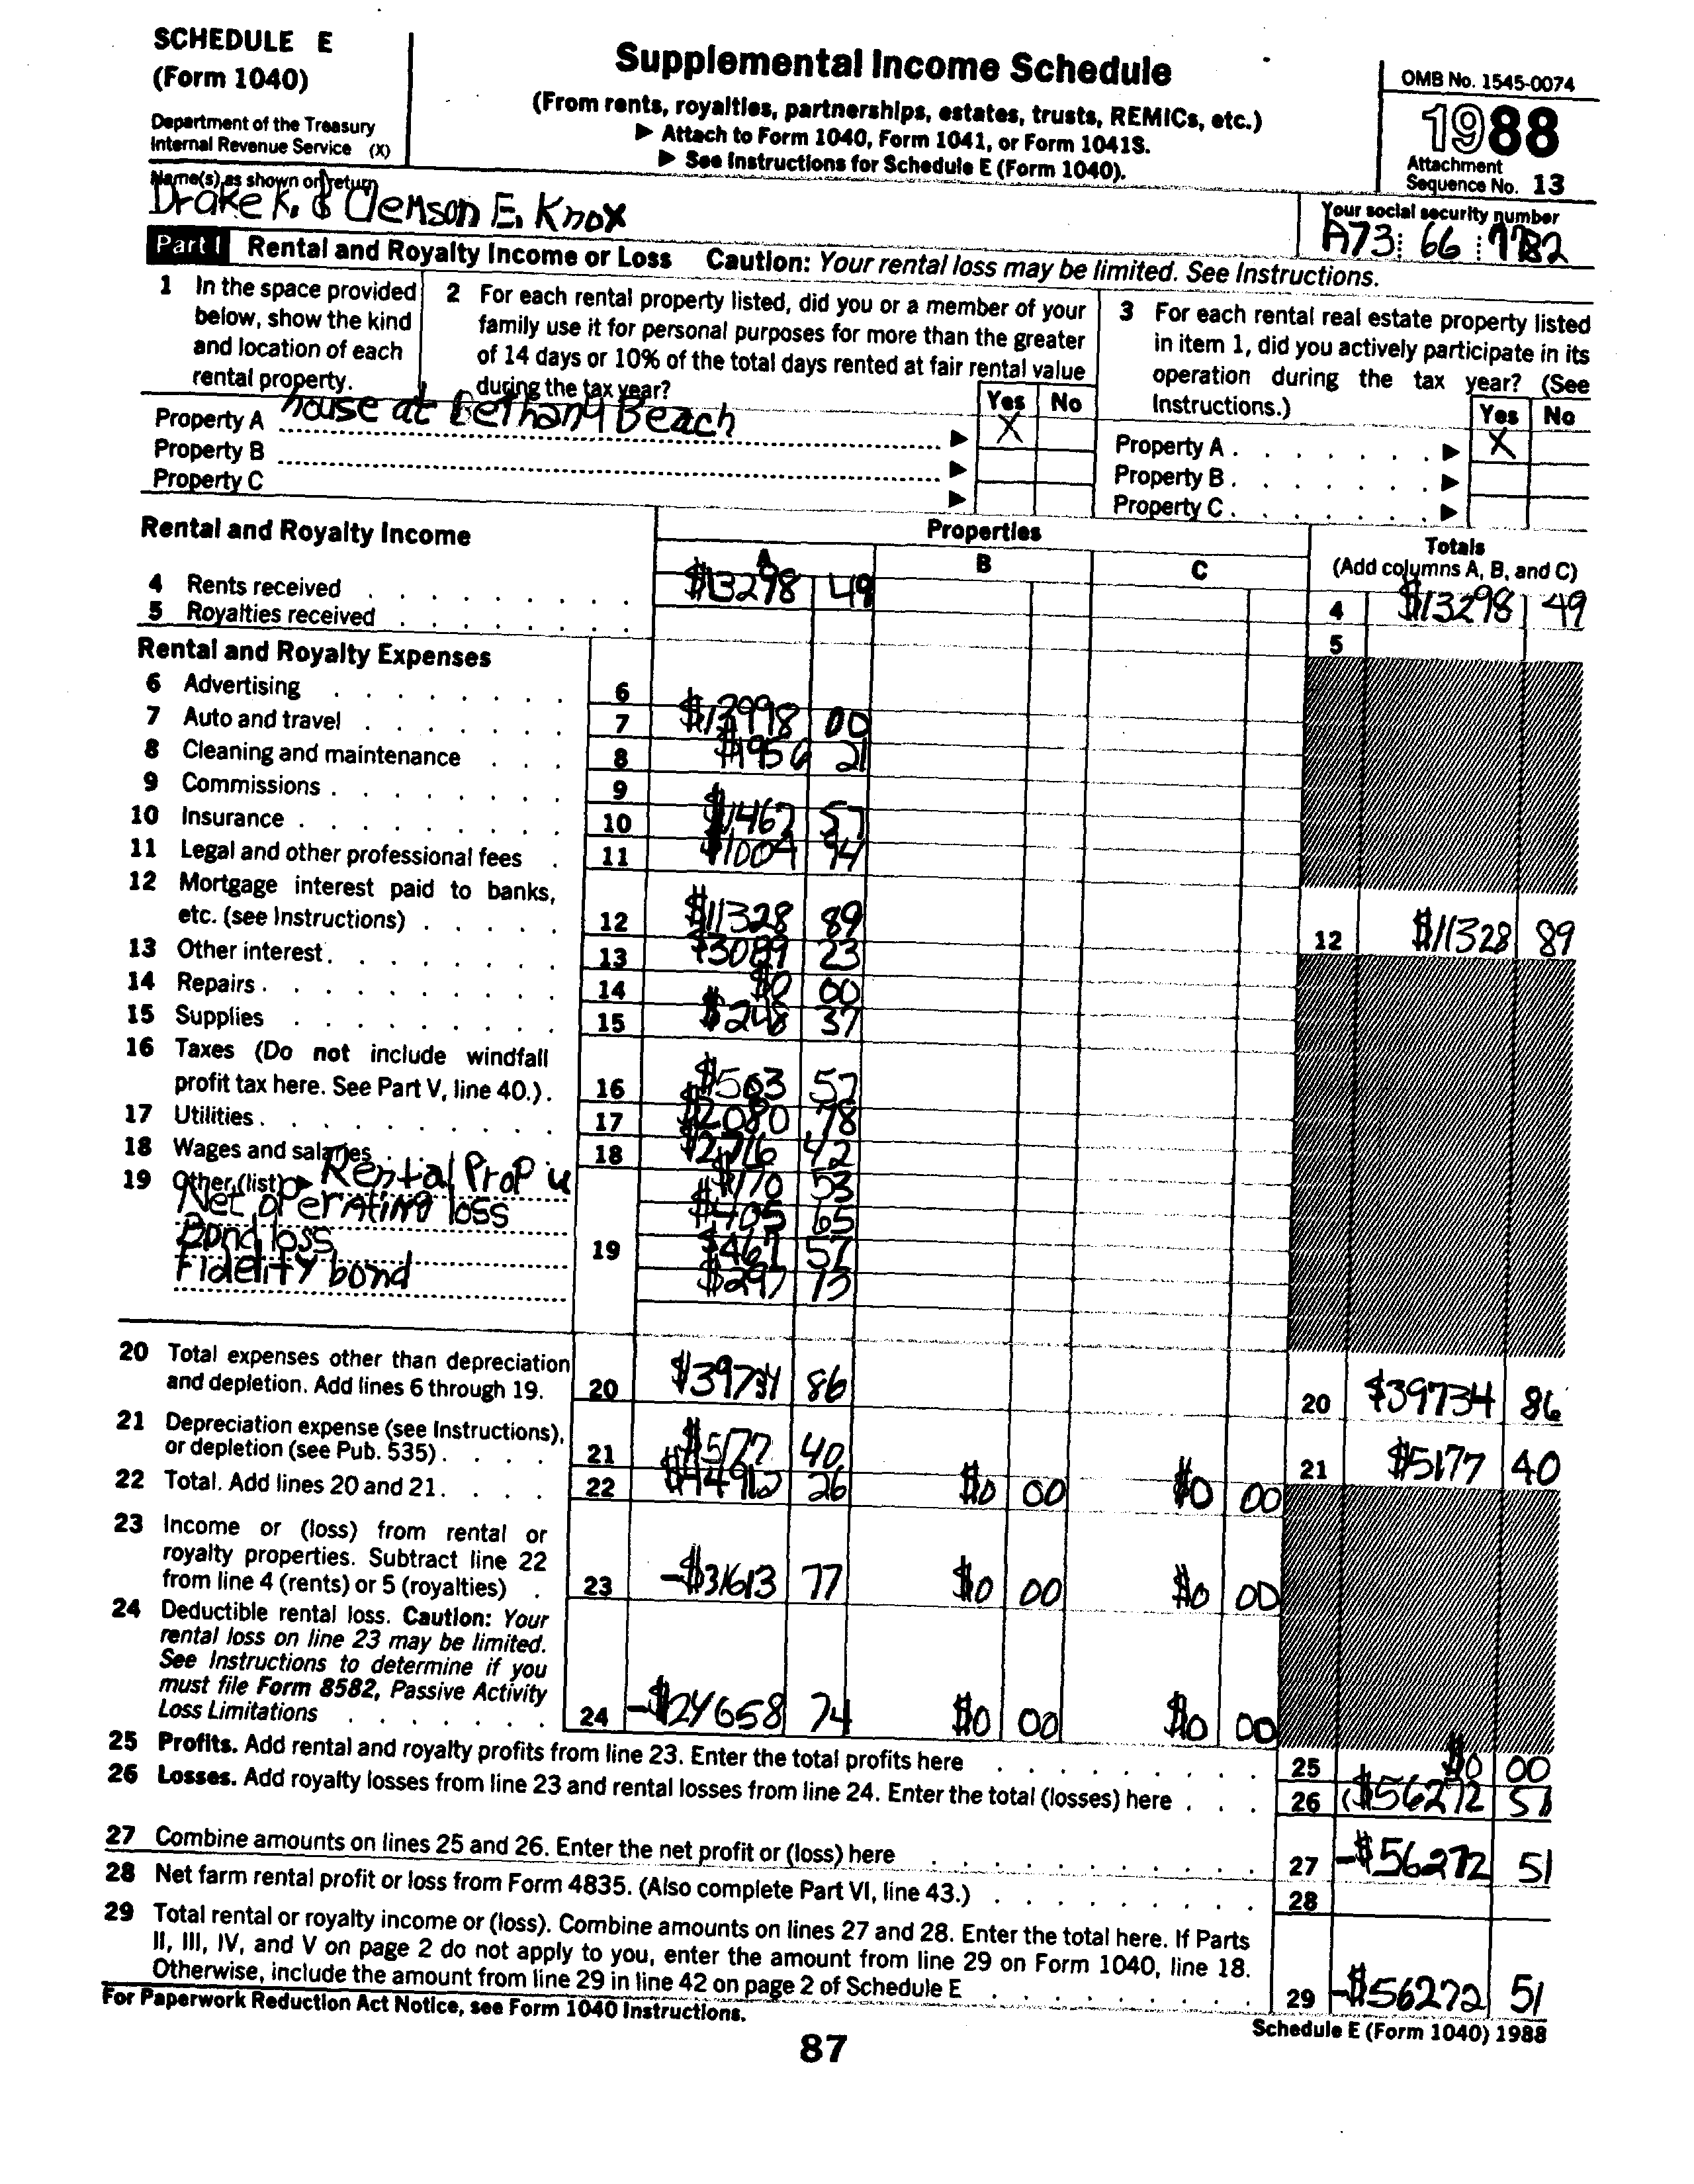 SCHEDULE E
(Form 1040)
Department of the Treasury
Internal Revenue Service (X)
Supplemental Income Schedule
(From rents, royalties, partnerships, estates, trusts, REMICs, etc.)
▶ Attach to Form 1040, Form 1041, or Form 1041S.
▶ See Instructions for Schedule E (Form 1040).
OMB No. 1545-0074
1988
Attachment
Sequence No. 13
Name(s) as shown on return
Drake K. & Clemson E. Knox
Your social security number
A73 66
Part I Rental and Royalty Income or Loss Caution: Your rental loss may be limited. See Instructions.
1 In the space provided
below, show the kind
and location of each
rental property.
2 For each rental property listed, did you or a member of your
family use it for personal purposes for more than the greater
of 14 days or 10% of the total days rented at fair rental value
during the tax year?
3 For each rental real estate property listed
in item 1, did you actively participate in its
operation during the tax year? (See
Instructions.)
Yes No
Yes No
Property A house at Bethany Beach ▶ X
Property B ▶
Property C ▶
Property A ▶ X
Property B ▶
Property C ▶
Rental and Royalty Income
Properties
A B C
Totals
(Add columns A, B, and C)
4 Rents received $13298 49 4 $13298 49
5 Royalties received 5
Rental and Royalty Expenses
6 Advertising 6
7 Auto and travel 7 00
8 Cleaning and maintenance 8 21
9 Commissions 9
10 Insurance 10 $1467 57
11 Legal and other professional fees 11 $1004 94
12 Mortgage interest paid to banks,
etc. (see Instructions) 12 $11328 89 12 $11328 89
13 Other interest 13 $3089 23
14 Repairs 14 $0 00
15 Supplies 15 $248 37
16 Taxes (Do not include windfall
profit tax here. See Part V, line 40.) 16 $503 57
17 Utilities 17 $2080 78
18 Wages and salaries 18 $2716 42
19 Other (list) ▶ Rental Prop u $170 53
Net operating loss $405 65
Bond loss 19 $467 57
Fidelity bond $297 13
20 Total expenses other than depreciation
and depletion. Add lines 6 through 19. 20 $39734 86 20 $39734 86
21 Depreciation expense (see Instructions),
or depletion (see Pub. 535) 21 $5177 40 21 $5177 40
22 Total. Add lines 20 and 21. 22 $44912 26 $0 00 $0 00
23 Income or (loss) from rental or
royalty properties. Subtract line 22
from line 4 (rents) or 5 (royalties) 23 -$31613 77 $0 00 $0 00
24 Deductible rental loss. Caution: Your
rental loss on line 23 may be limited.
See Instructions to determine if you
must file Form 8582, Passive Activity
Loss Limitations 24 -$24658 74 $0 00 $0 00
25 Profits. Add rental and royalty profits from line 23. Enter the total profits here 25 $0 00
26 Losses. Add royalty losses from line 23 and rental losses from line 24. Enter the total (losses) here 26 ($56272 51
27 Combine amounts on lines 25 and 26. Enter the net profit or (loss) here 27 -$56272 51
28 Net farm rental profit or loss from Form 4835. (Also complete Part VI, line 43.) 28
29 Total rental or royalty income or (loss). Combine amounts on lines 27 and 28. Enter the total here. If Parts
II, III, IV, and V on page 2 do not apply to you, enter the amount from line 29 on Form 1040, line 18.
Otherwise, include the amount from line 29 in line 42 on page 2 of Schedule E 29 -$56272 51
For Paperwork Reduction Act Notice, see Form 1040 Instructions.
Schedule E (Form 1040) 1988
87